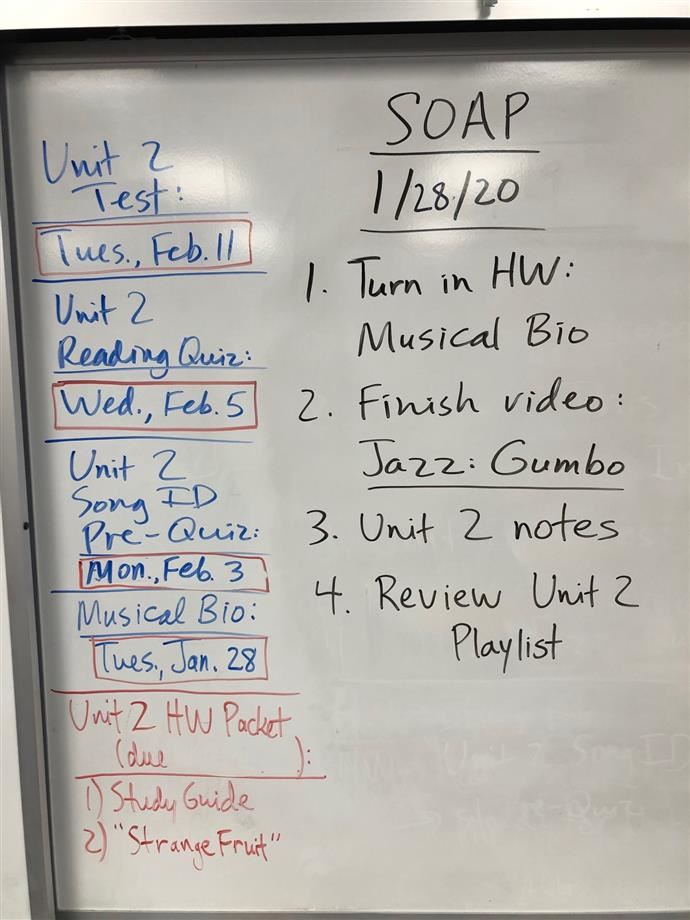 Unit 2
Test:
Tues., Feb. 11
Unit 2
Reading Quiz:
Wed., Feb. 5
Unit 2
Song ID
Pre-Quiz:
Mon., Feb. 3
Musical Bio:
Tues., Jan. 28
Unit 2 HW Packet
(due ):
1) Study Guide
2) "Strange Fruit"
SOAP
1/28/20
1. Turn in HW:
Musical Bio
2. Finish video:
Jazz: Gumbo
3. Unit 2 notes
4. Review Unit 2
Playlist
Unit 2 Song ID